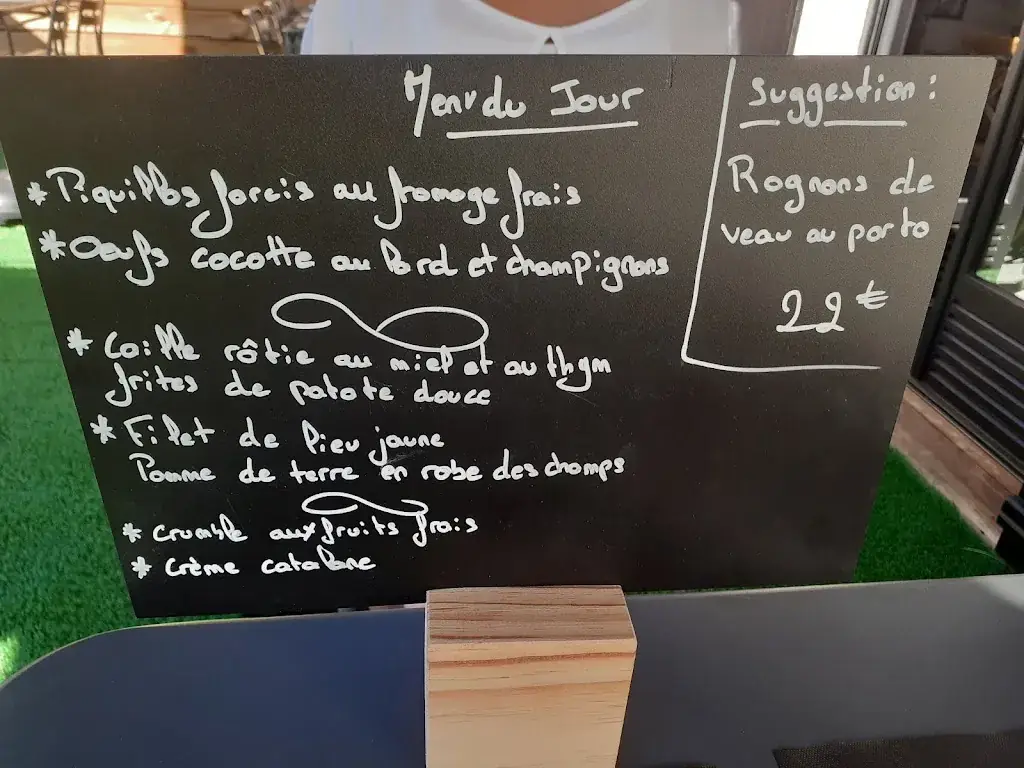 Menu du Jour
* Piquillos farcis au fromage frais
* Oeufs cocotte au lard et champignons
* Caille rôtie au miel et au thym
frites de patate douce
* Filet de lieu jaune
Pomme de terre en robe des champs
* Crumble aux fruits frais
* Crème catalane
Suggestion :
Rognons de
veau au porto
22 €